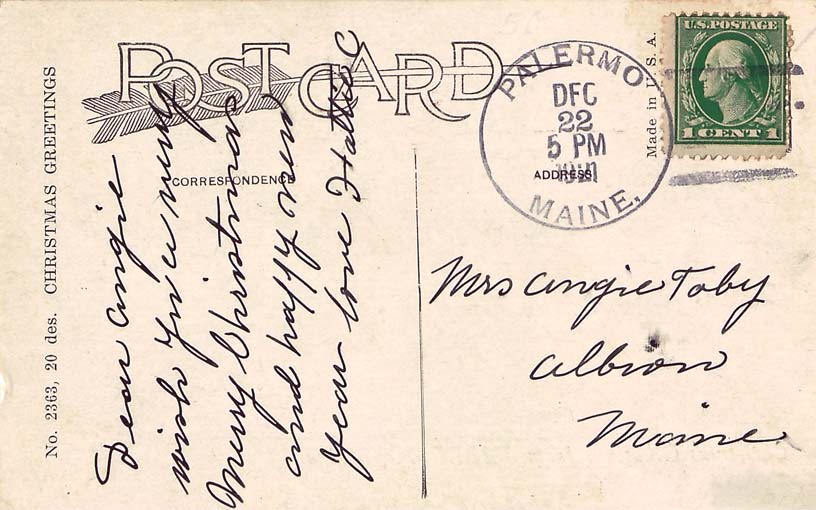 No. 2363, 20 des. CHRISTMAS GREETINGS
POST CARD
CORRESPONDENCE
Dear Angie
wish you a very
Merry Christmas
and happy new
year love Hattie C
PALERMO
DEC
22
5 PM
MAINE.
ADDRESS
Made in U.S.A.
U.S. POSTAGE
1 CENT 1
Mrs Angie Toby
Albion
Maine